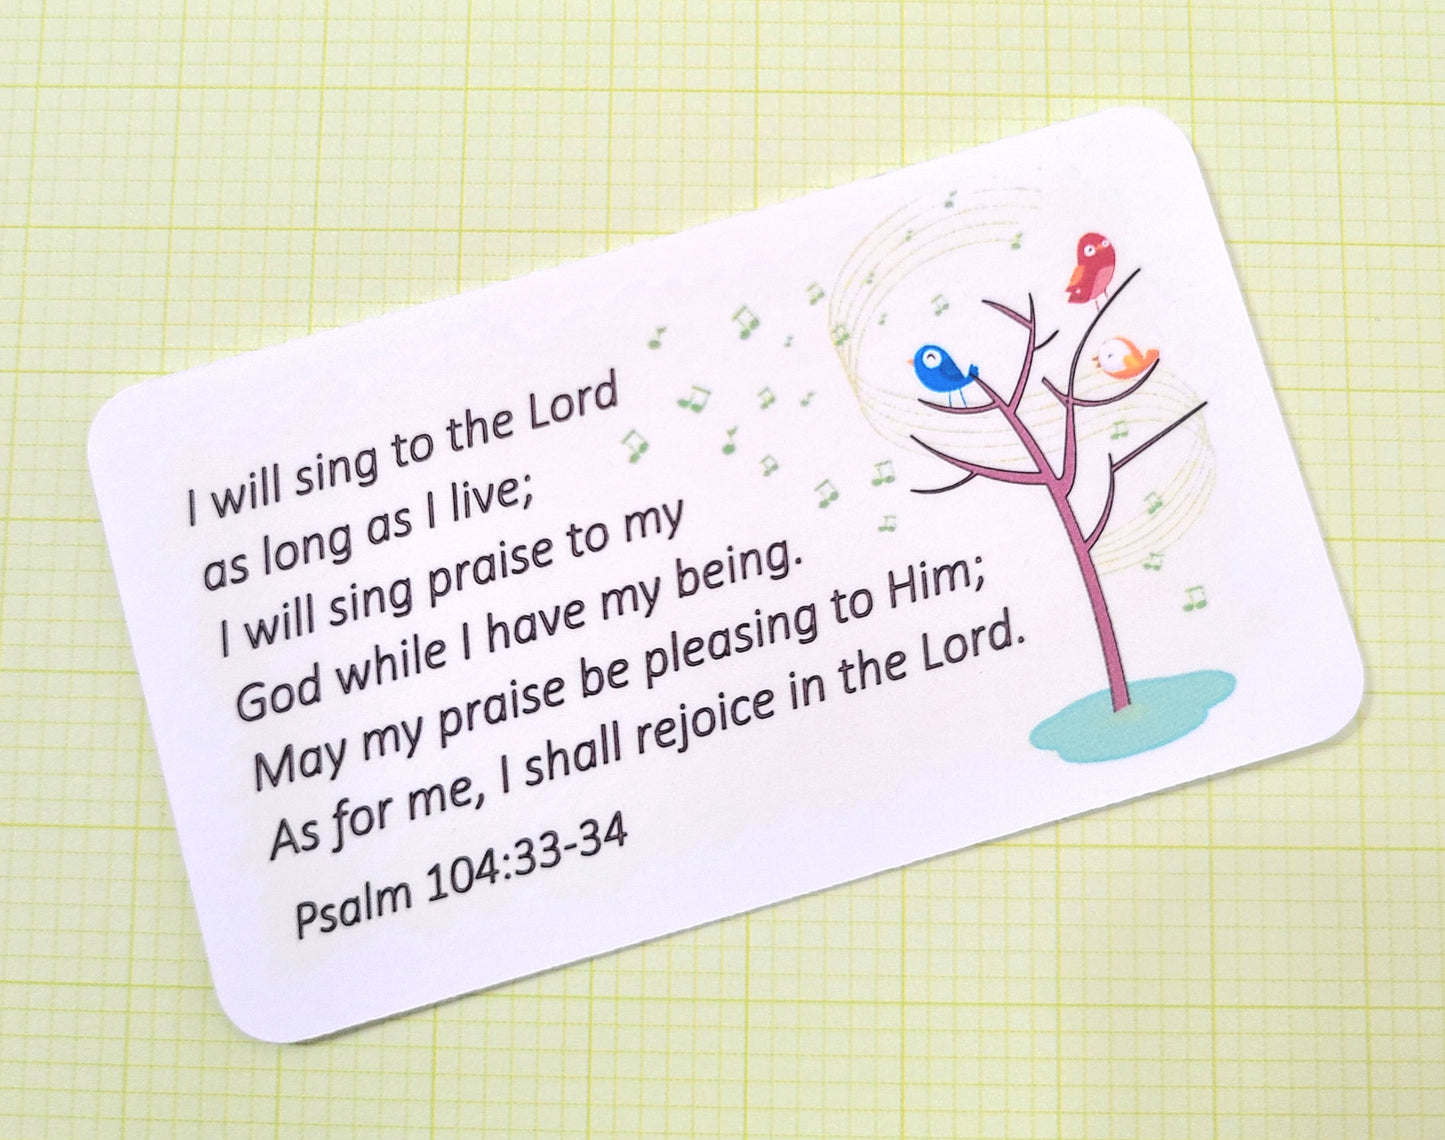 I will sing to the Lord
as long as I live;
I will sing praise to my
God while I have my being.
May my praise be pleasing to Him;
As for me, I shall rejoice in the Lord.
Psalm 104:33-34